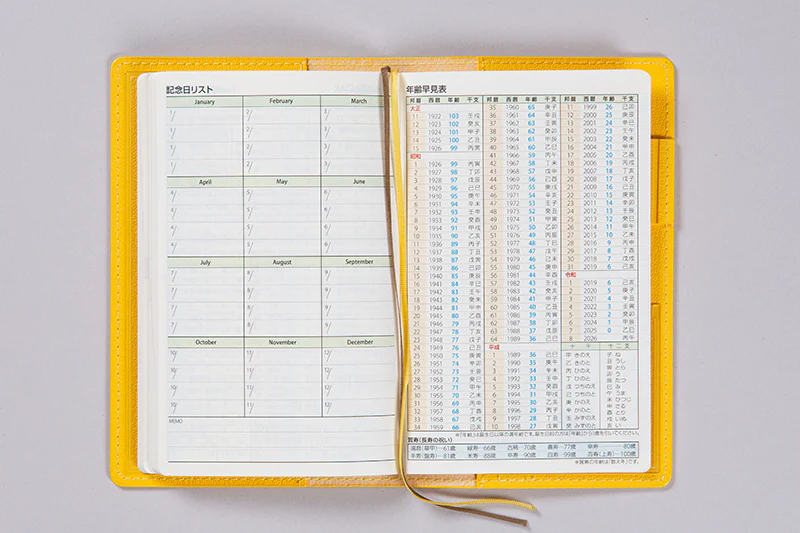 記念日リスト
January February March
1/ 2/ 3/
1/ 2/ 3/
1/ 2/ 3/
1/ 2/ 3/
April May June
4/ 5/ 6/
4/ 5/ 6/
4/ 5/ 6/
4/ 5/ 6/
July August September
7/ 8/ 9/
7/ 8/ 9/
7/ 8/ 9/
7/ 8/ 9/
October November December
10/ 11/ 12/
10/ 11/ 12/
10/ 11/ 12/
10/ 11/ 12/
MEMO
年齢早見表
邦暦 西暦 年齢 干支
大正
11 1922 103 壬戌
12 1923 102 癸亥
13 1924 101 甲子
14 1925 100 乙丑
15 1926 99 丙寅
昭和
1 1926 99 丙寅
2 1927 98 丁卯
3 1928 97 戊辰
4 1929 96 己巳
5 1930 95 庚午
6 1931 94 辛未
7 1932 93 壬申
8 1933 92 癸酉
9 1934 91 甲戌
10 1935 90 乙亥
11 1936 89 丙子
12 1937 88 丁丑
13 1938 87 戊寅
14 1939 86 己卯
15 1940 85 庚辰
16 1941 84 辛巳
17 1942 83 壬午
18 1943 82 癸未
19 1944 81 甲申
20 1945 80 乙酉
21 1946 79 丙戌
22 1947 78 丁亥
23 1948 77 戊子
24 1949 76 己丑
25 1950 75 庚寅
26 1951 74 辛卯
27 1952 73 壬辰
28 1953 72 癸巳
29 1954 71 甲午
30 1955 70 乙未
31 1956 69 丙申
32 1957 68 丁酉
33 1958 67 戊戌
34 1959 66 己亥
邦暦 西暦 年齢 干支
35 1960 65 庚子
36 1961 64 辛丑
37 1962 63 壬寅
38 1963 62 癸卯
39 1964 61 甲辰
40 1965 60 乙巳
41 1966 59 丙午
42 1967 58 丁未
43 1968 57 戊申
44 1969 56 己酉
45 1970 55 庚戌
46 1971 54 辛亥
47 1972 53 壬子
48 1973 52 癸丑
49 1974 51 甲寅
50 1975 50 乙卯
51 1976 49 丙辰
52 1977 48 丁巳
53 1978 47 戊午
54 1979 46 己未
55 1980 45 庚申
56 1981 44 辛酉
57 1982 43 壬戌
58 1983 42 癸亥
59 1984 41 甲子
60 1985 40 乙丑
61 1986 39 丙寅
62 1987 38 丁卯
63 1988 37 戊辰
64 1989 36 己巳
平成
1 1989 36 己巳
2 1990 35 庚午
3 1991 34 辛未
4 1992 33 壬申
5 1993 32 癸酉
6 1994 31 甲戌
7 1995 30 乙亥
8 1996 29 丙子
9 1997 28 丁丑
10 1998 27 戊寅
邦暦 西暦 年齢 干支
11 1999 26 己卯
12 2000 25 庚辰
13 2001 24 辛巳
14 2002 23 壬午
15 2003 22 癸未
16 2004 21 甲申
17 2005 20 乙酉
18 2006 19 丙戌
19 2007 18 丁亥
20 2008 17 戊子
21 2009 16 己丑
22 2010 15 庚寅
23 2011 14 辛卯
24 2012 13 壬辰
25 2013 12 癸巳
26 2014 11 甲午
27 2015 10 乙未
28 2016 9 丙申
29 2017 8 丁酉
30 2018 7 戊戌
31 2019 6 己亥
令和
1 2019 6 己亥
2 2020 5 庚子
3 2021 4 辛丑
4 2022 3 壬寅
5 2023 2 癸卯
6 2024 1 甲辰
7 2025 0 乙巳
8 2026 丙午
十干
甲 きのえ
乙 きのと
丙 ひのえ
丁 ひのと
戊 つちのえ
己 つちのと
庚 かのえ
辛 かのと
壬 みずのえ
癸 みずのと
十二支
子 ね
丑 うし
寅 とら
卯 う
辰 たつ
巳 み
午 うま
未 ひつじ
申 さる
酉 とり
戌 いぬ
亥 い
賀寿(長寿の祝い)
還暦(華甲)—61歳 緑寿—66歳 古稀—70歳 喜寿—77歳 傘寿—80歳
半寿(盤寿)—81歳 米寿—88歳 卒寿—90歳 白寿—99歳 百寿(上寿)—100歳
※賀寿の年齢は「数え年」です。